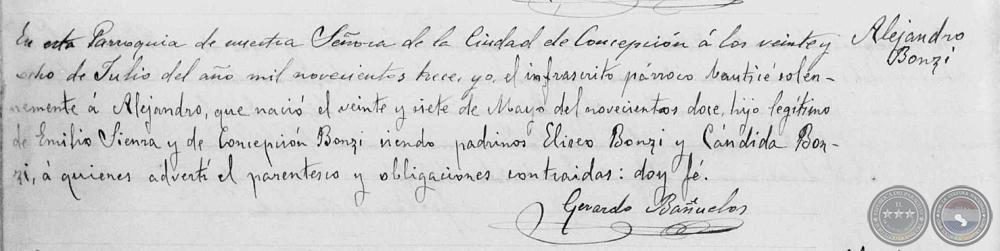 En esta Parroquia de nuestra Señora de la Ciudad de Concepción á los veinte y
ocho de Julio del año mil novecientos trece, yo, el infrascrito párroco bauticé solem-
nemente á Alejandro, que nació el veinte y siete de Mayo del novecientos doce, hijo legítimo
de Emilio Sienra y de Concepción Bonzi siendo padrinos Eliseo Bonzi y Cándida Bon-
zi, á quienes advertí el parentesco y obligaciones contraidas: doy fé.
Gerardo Bañuelos
Alejandro
Bonzi